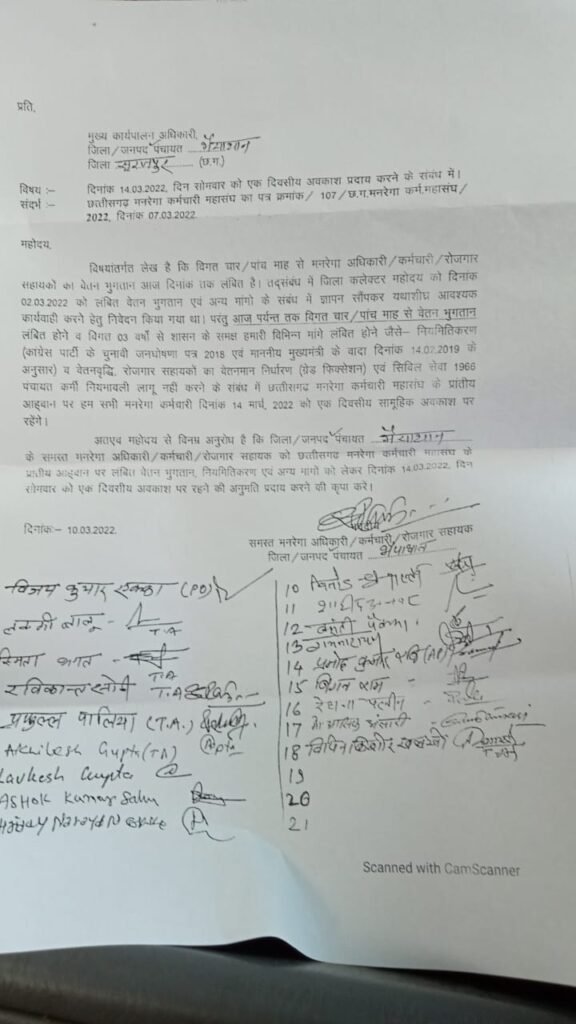 प्रति,
मुख्य कार्यपालन अधिकारी,
जिला/जनपद पंचायत भैयाथान
जिला सूरजपुर (छ.ग.)
विषय :– दिनांक 14.03.2022, दिन सोमवार को एक दिवसीय अवकाश प्रदाय करने के संबंध में।
संदर्भ :– छत्तीसगढ़ मनरेगा कर्मचारी महासंघ का पत्र क्रमांक/ 107/छ.ग.मनरेगा कर्म.महासंघ/
2022, दिनांक 07.03.2022
महोदय,
विषयांतर्गत लेख है कि विगत चार/पांच माह से मनरेगा अधिकारी/कर्मचारी/रोजगार
सहायकों का वेतन भुगतान आज दिनांक तक लंबित है। तद्संबंध में जिला कलेक्टर महोदय को दिनांक
02.03.2022 को लंबित वेतन भुगतान एवं अन्य मांगो के संबंध में ज्ञापन सौंपकर यथाशीघ्र आवश्यक
कार्यवाही करने हेतु निवेदन किया गया था। परंतु आज पर्यन्त तक विगत चार/पांच माह से वेतन भुगतान
लंबित होने व विगत 03 वर्षो से शासन के समक्ष हमारी विभिन्न मांगे लंबित होने जैसे– नियमितिकरण
(कांग्रेस पार्टी के चुनावी जनघोषणा पत्र 2018 एवं माननीय मुख्यमंत्री के वादा दिनांक 14.02.2019 के
अनुसार) व वेतनवृद्धि, रोजगार सहायकों का वेतनमान निर्धारण (ग्रेड फिक्सेशन) एवं सिविल सेवा 1966
पंचायत कर्मी नियमावली लागू नही करने के संबंध में छत्तीसगढ़ मनरेगा कर्मचारी महासंघ के प्रांतीय
आह्वान पर हम सभी मनरेगा कर्मचारी दिनांक 14 मार्च, 2022 को एक दिवसीय सामूहिक अवकाश पर
रहेंगे।
अतएव महोदय से विनम्र अनुरोध है कि जिला/जनपद पंचायत भैयाथान
के समस्त मनरेगा अधिकारी/कर्मचारी/रोजगार सहायक को छत्तीसगढ़ मनरेगा कर्मचारी महासंघ के
प्रांतीय आह्वान पर लंबित वेतन भुगतान, नियमितिकरण एवं अन्य मांगो को लेकर दिनांक 14.03.2022, दिन
सोमवार को एक दिवसीय अवकाश पर रहने की अनुमति प्रदाय करने की कृपा करे।
दिनांक:– 10.03.2022
समस्त मनरेगा अधिकारी/कर्मचारी/रोजगार सहायक
जिला/जनपद पंचायत भैयाथान
विजय कुमार एक्का (PO)
T.A
स्मिता भगत T.A
रविकान्त सोनी T.A
प्रफुल्ल पालिया (T.A.)
Akhilesh Gupta (TA) Gupta
Lavkesh Gupta
ASHOK Kumar Sahu
10 विनोद
11
12
13 रामनारायण
14 प्रमोद कुमार
15
16
17 अंसारी
18 विपिन किशोर
19
20
21
Scanned with CamScanner